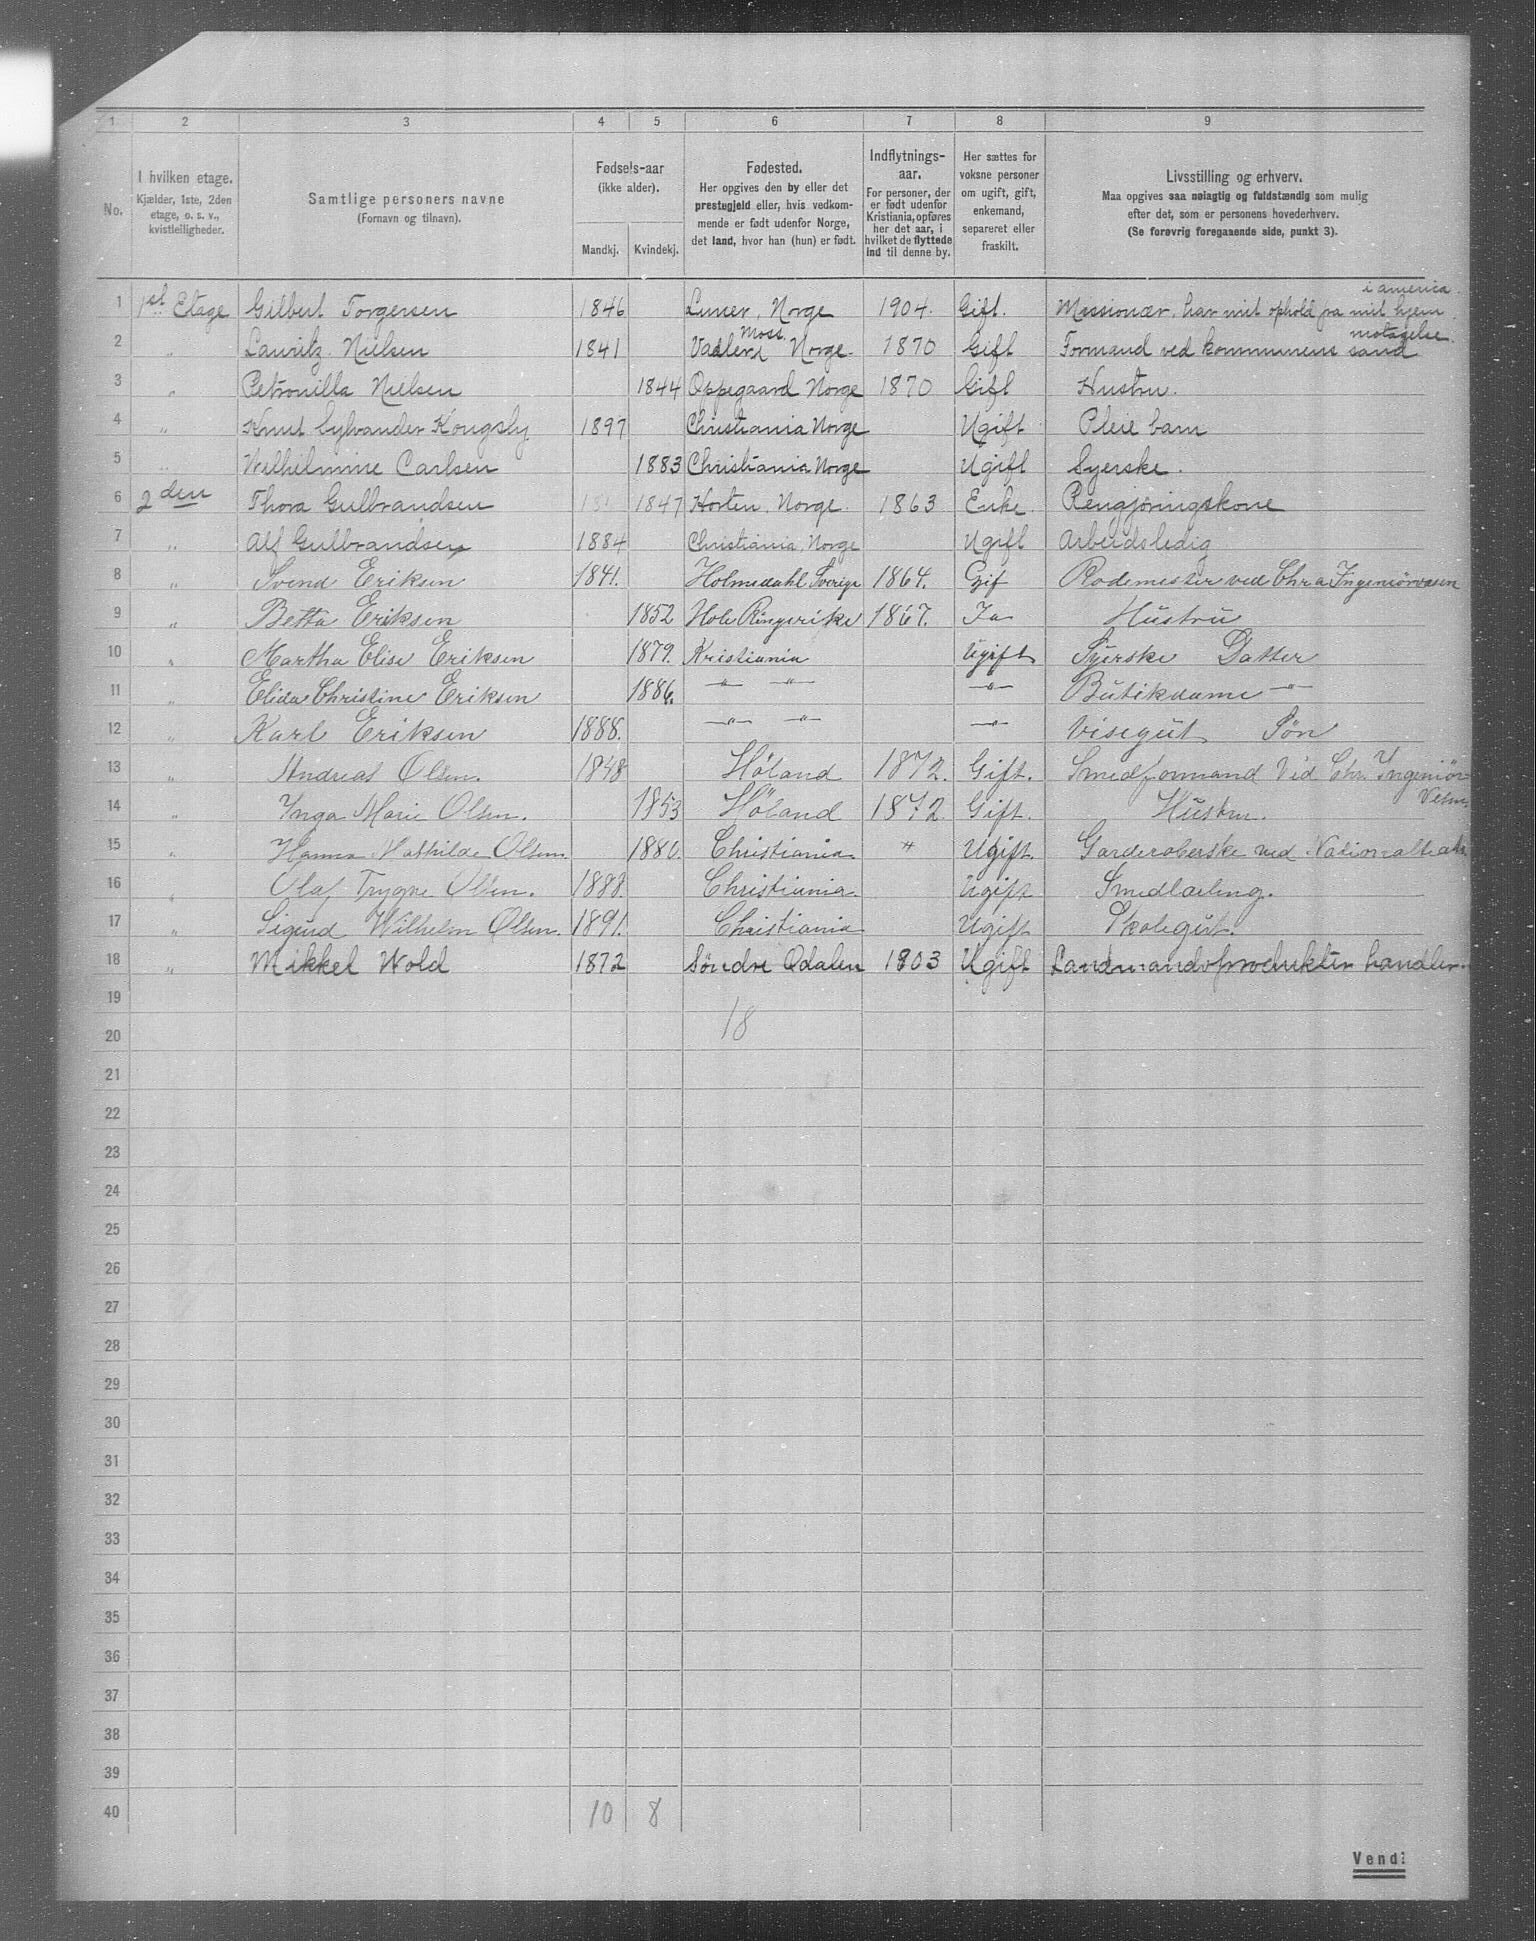 1 2 3 4 5 6 7 8 9
No.
I hvilken etage.
Kjælder, 1ste, 2den
etage, o. s. v.,
kvistleiligheder.
Samtlige personers navne
(Fornavn og tilnavn).
Fødsels-aar
(ikke alder).
Mandkj. Kvindekj.
Fødested.
Her opgives den by eller det
prestegjeld eller, hvis vedkom-
mende er født udenfor Norge,
det land, hvor han (hun) er født.
Indflytnings-
aar.
For personer, der
er født udenfor
Kristiania, opføres
her det aar, i
hvilket de flyttede
ind til denne by.
Her sættes for
voksne personer
om ugift, gift,
enkemand,
separeret eller
fraskilt.
Livsstilling og erhverv.
Maa opgives saa nøiagtig og fuldstændig som mulig
efter det, som er personens hovederhverv.
(Se forøvrig foregaaende side, punkt 3).
i america
1 1st Etage Gilbert Torgersen 1846 Luner, Norge 1904. Gift. Missionær, har mit ophold fra mit hjem
Moss motagelse
2 " Lauritz Nielsen 1841 Vaaler Norge. 1870 Gift Formand ved kommunens sand
3 " Petronilla Nielsen 1844 Oppegaard Norge 1870 Gift Hustru.
4 " Knut Sylvander Kongsby 1897 Christiania Norge Ugift Pleie barn
5 " Wilhelmine Carlsen 1883 Christiania Norge Ugift Syerske.
6 2den Thora Gulbrandsen 1847 Horten, Norge 1863 Enke Rengjøringskone
7 " Alf Gulbrandsen 1884 Christiania, Norge Ugift Arbeidsledig
8 " Svend Eriksen 1841. Holmedahl Sverige 1864. Gif Rodemester ved Chra Ingeniørvæsen
9 " Betta Eriksen 1852 Hole Ringerike 1867. Ja Hustru
10 " Martha Elise Eriksen 1879. Kristiania Ugift Syerske Datter
11 " Elida Christine Eriksen 1886. — " — — " — — " — Butikdame — " —
12 " Karl Eriksen 1888. — " — — " — — " — Visegut Søn
13 " Andreas Olsen. 1848 Høland 1872. Gift. Smedformand Ved Chr. Ingeniør
14 " Inga Marie Olsen. 1853 Høland 1872. Gift. Hustru. Vesn.
15 " Hanna Mathilde Olsen 1880. Christiania " Ugift. Garderoberske ved Nationalteatr
16 " Olaf Trygve Olsen. 1888. Christiania. Ugift Smedlærling.
17 " Sigurd Wilhelm Olsen. 1891. Christiania Ugift Skolegut.
18 " Mikkel Wold 1872 Søndre Odalen 1903 Ugift Landmandsprodukter handler.
19
18
20
21
22
23
24
25
26
27
28
29
30
31
32
33
34
35
36
37
38
39
40 10 8
Vend!